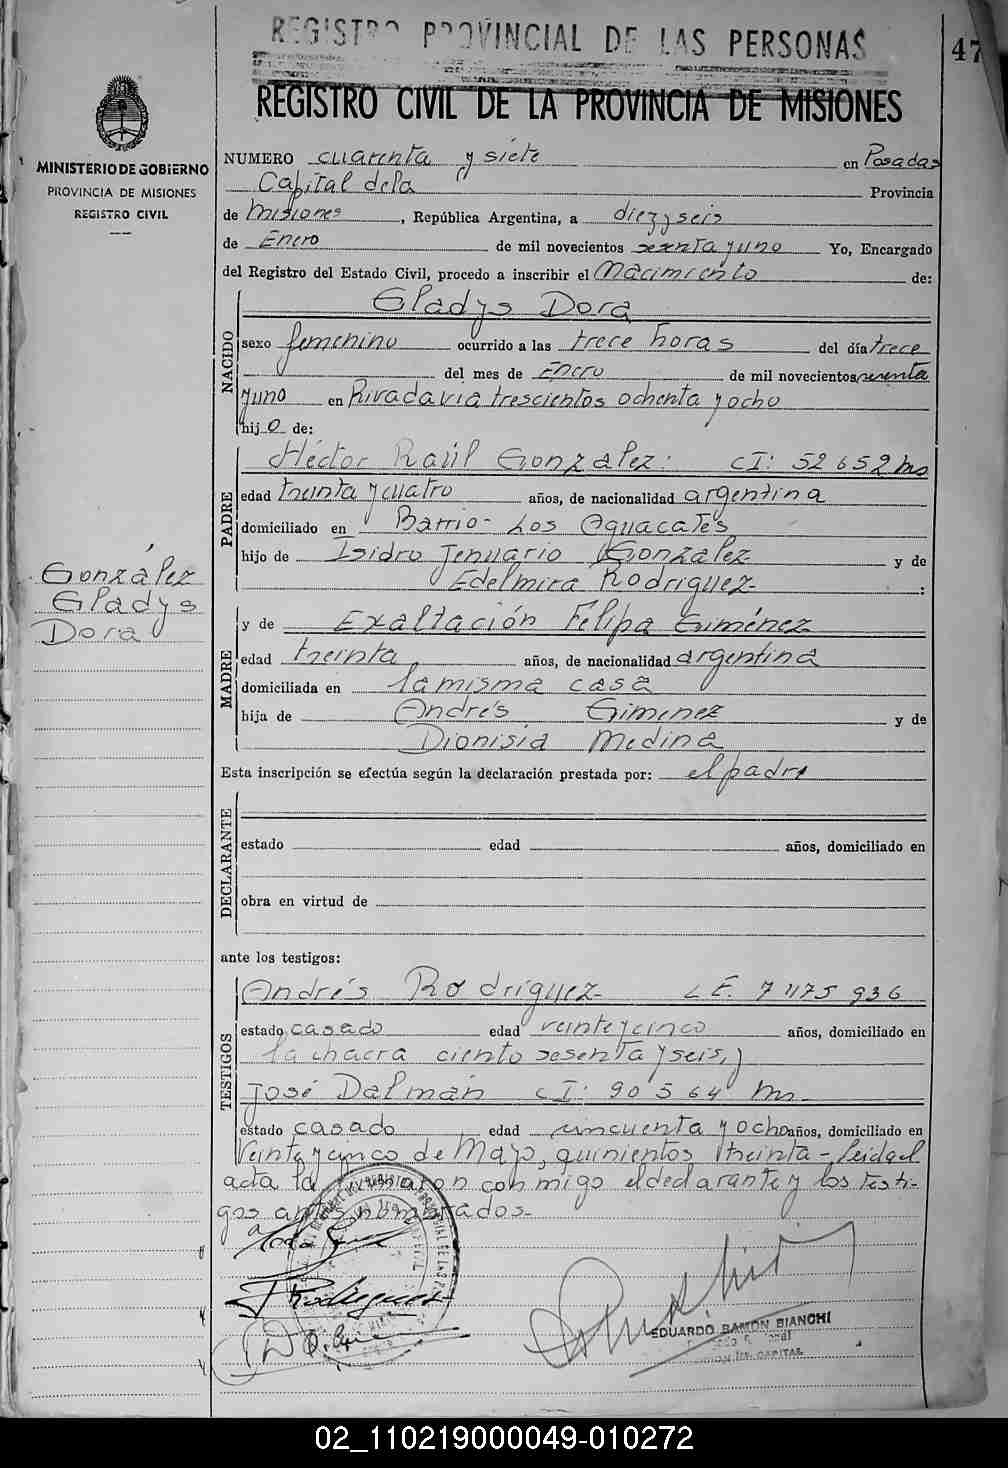 REGISTRO PROVINCIAL DE LAS PERSONAS
47
REGISTRO CIVIL DE LA PROVINCIA DE MISIONES
MINISTERIO DE GOBIERNO
PROVINCIA DE MISIONES
REGISTRO CIVIL
NUMERO cuarenta y siete en Posadas
Capital de la Provincia
de Misiones, República Argentina, a diez y seis
de Enero de mil novecientos sesenta y uno Yo, Encargado
del Registro del Estado Civil, procedo a inscribir el Nacimiento de:
NACIDO
Gladys Dora
sexo femenino ocurrido a las trece horas del día trece
del mes de Enero de mil novecientos sesenta
y uno en Rivadavia trescientos ochenta y ocho
hij o de:
PADRE
Héctor Raúl González: CI: 52652 ms
edad treinta y cuatro años, de nacionalidad argentina
domiciliado en Barrio - Los Aguacates
hijo de Isidro Jenuario González y de
Edelmira Rodríguez :
González
Gladys
Dora
MADRE
y de Exaltación Felipa Giménez
edad treinta años, de nacionalidad argentina
domiciliada en la misma casa
hija de Andrés Gimenez y de
Dionisia Medina
Esta inscripción se efectúa según la declaración prestada por: el padre
DECLARANTE
estado edad años, domiciliado en
obra en virtud de
ante los testigos:
TESTIGOS
Andrés Rodríguez LE. 7475936
estado casado edad veinte y cinco años, domiciliado en
la chacra ciento sesenta y seis, y
José Dalmán CI: 90564 ms
estado casado edad cincuenta y ocho años, domiciliado en
Veinte y cinco de Mayo, quinientos treinta - Leida el
acta la firmaron conmigo el declarante y los testi-
gos antes nombrados.
Rodriguez
EDUARDO RAMON BIANCHI
CAPITAL
02_110219000049-010272